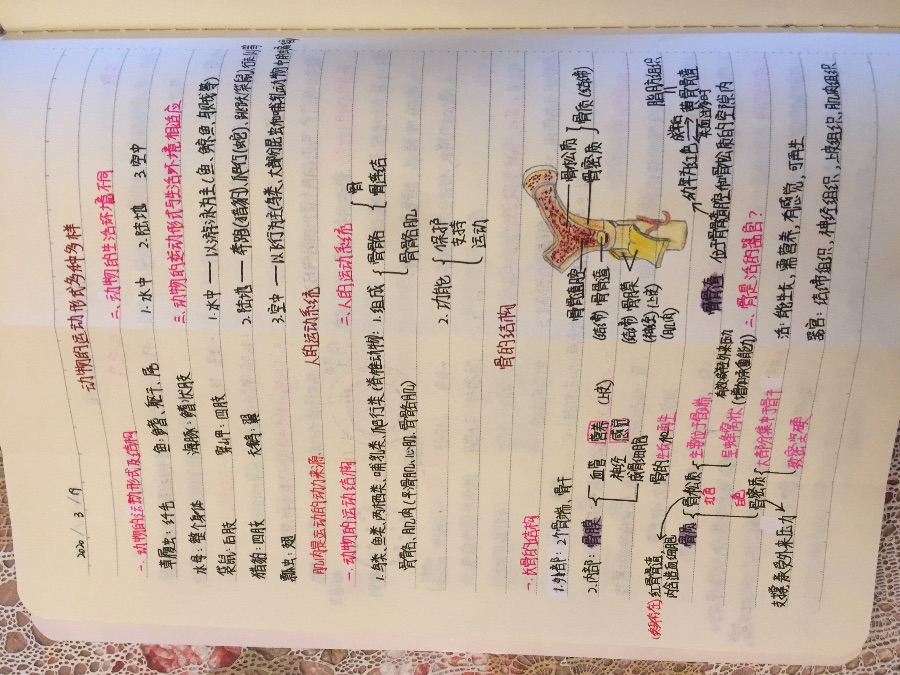 2020 / 3 / 9
动物的运动形式多种多样
一. 动物的运动形式及结构
草履虫: 纤毛
鱼: 鳍、躯干、尾
水母: 整个身体
海豚: 鳍状肢
袋鼠: 后肢
穿山甲: 四肢
猎豹: 四肢
天鹅: 翼
瓢虫: 翅
二. 动物的生活环境不同
1. 水中 2. 陆地 3. 空中
三. 动物的运动形式与生活环境相适应
1. 水中 —— 以游泳为主(鱼、鲸鱼、虾蟹等)
2. 陆地 —— 奔跑(猎豹)、爬行(蛇)、跳跃(袋鼠)、行走
3. 空中 —— 以飞行为主(鸟类、大部分昆虫和哺乳动物中的蝙蝠)
人的运动系统
肌肉是运动的动力来源
一. 动物的运动结构
1. 鸟类、鱼类、两栖类、哺乳类、爬行类(脊椎动物):
骨骼、肌肉(平滑肌、心肌、骨骼肌)
二. 人的运动系统
1. 组成
骨骼
骨
骨连结
骨骼肌
2. 功能
保护
支持
运动
骨的结构
一. 长骨的结构
1. 外部: 2个骨端、骨干
2. 内部:
骨膜
血管 营养 (上皮)
神经 感觉
成骨细胞
骨的生长和再生
骨质
骨松质
红色
主要位于骨端,
呈蜂窝状
有效减轻外来压力
(增加承重能力)
骨密质
白色
大部分集中于骨干
致密坚硬
支撑、承受外来压力
红骨骨髓,
内含造血细胞
骨松质
骨密质
骨质(结缔)
骨髓腔
(结缔) 骨骨髓
(结缔) 骨膜 (上皮)
(神经)
(肌肉)
骨髓 位于骨髓腔和骨松质的空隙内
幼年为红色
成年后
失去造血功能
黄骨骨髓
脂肪组织
二. 骨是活的器官?
活: 能生长, 需营养, 有感觉, 可再生
器官: 结缔组织、神经组织、上皮组织、肌肉组织